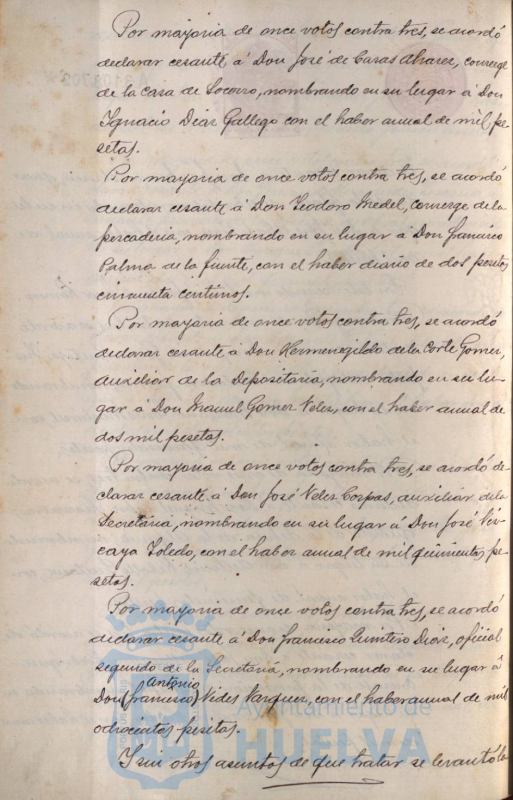 Por mayoria de once votos contra tres, se acordó
declarar cesante á Don José de Casas Alvarez, converge
de la casa de Socorro, nombrando en su lugar á Don
Ignacio Diaz Gallego con el haber anual de mil pe
setas.
Por mayoria de once votos contra tres, se acordó
declarar cesante á Don Teodoro Medel, converge de la
pescaderia, nombrando en su lugar á Don Francisco
Palma de la Fuente, con el haber diario de dos pesetas
cincuenta centimos.
Por mayoria de once votos contra tres, se acordó
declarar cesante á Don Hermenegildo de la Corte Gomez,
auxiliar de la Depositaria, nombrando en su lu-
gar á Don Manuel Gomez Velez, con el haber anual de
dos mil pesetas.
Por mayoria de once votos contra tres, se acordó de-
clarar cesante á Don José Velez Corpas, auxiliar de la
Secretaria, nombrando en su lugar á Don José Viz-
caya Toledo, con el haber anual de mil quinientas pe-
setas.
Por mayoria de once votos contra tres, se acordó
declarar cesante á Don Francisco Quintero Diaz, oficial
segundo de la Secretaria, nombrando en su lugar á
Antonio
Don (Francisco) Vides Vazquez, con el haber anual de mil
ochocientas pesetas.
Y sin otros asuntos de que tratar se levantó la
Ayuntamiento de
HUELVA